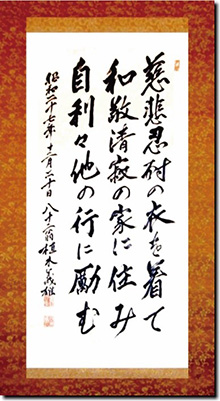 慈悲忍耐の衣を着て
和敬清寂の家に住み
自利々他の行に励む
昭和二十七年十二月二十日 八十三翁植木義雄